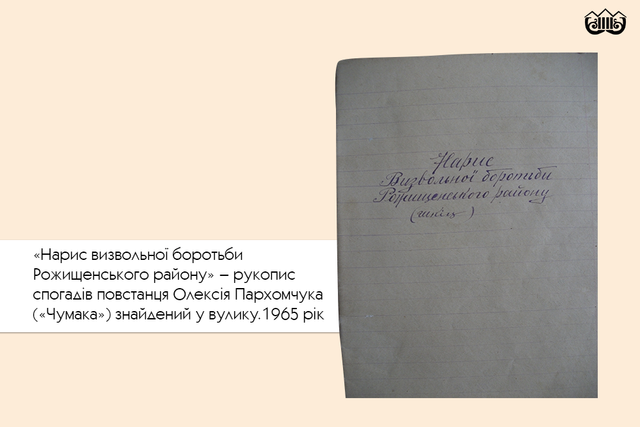 Нарис
Визвольної боротьби
Рожищенського району
(шкіц)
«Нарис визвольної боротьби
Рожищенського району» – рукопис
спогадів повстанця Олексія Пархомчука
(«Чумака») знайдений у вулику.1965 рік